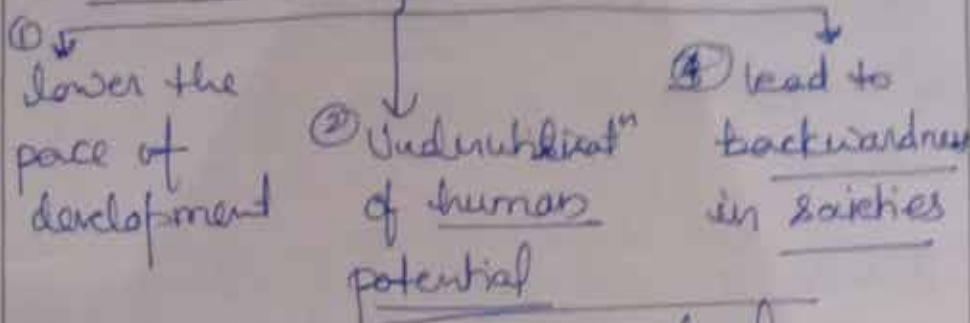 ①
lower the
pace of
development
② Underutilizatⁿ
of human
potential
④ lead to
backwardness
in societies